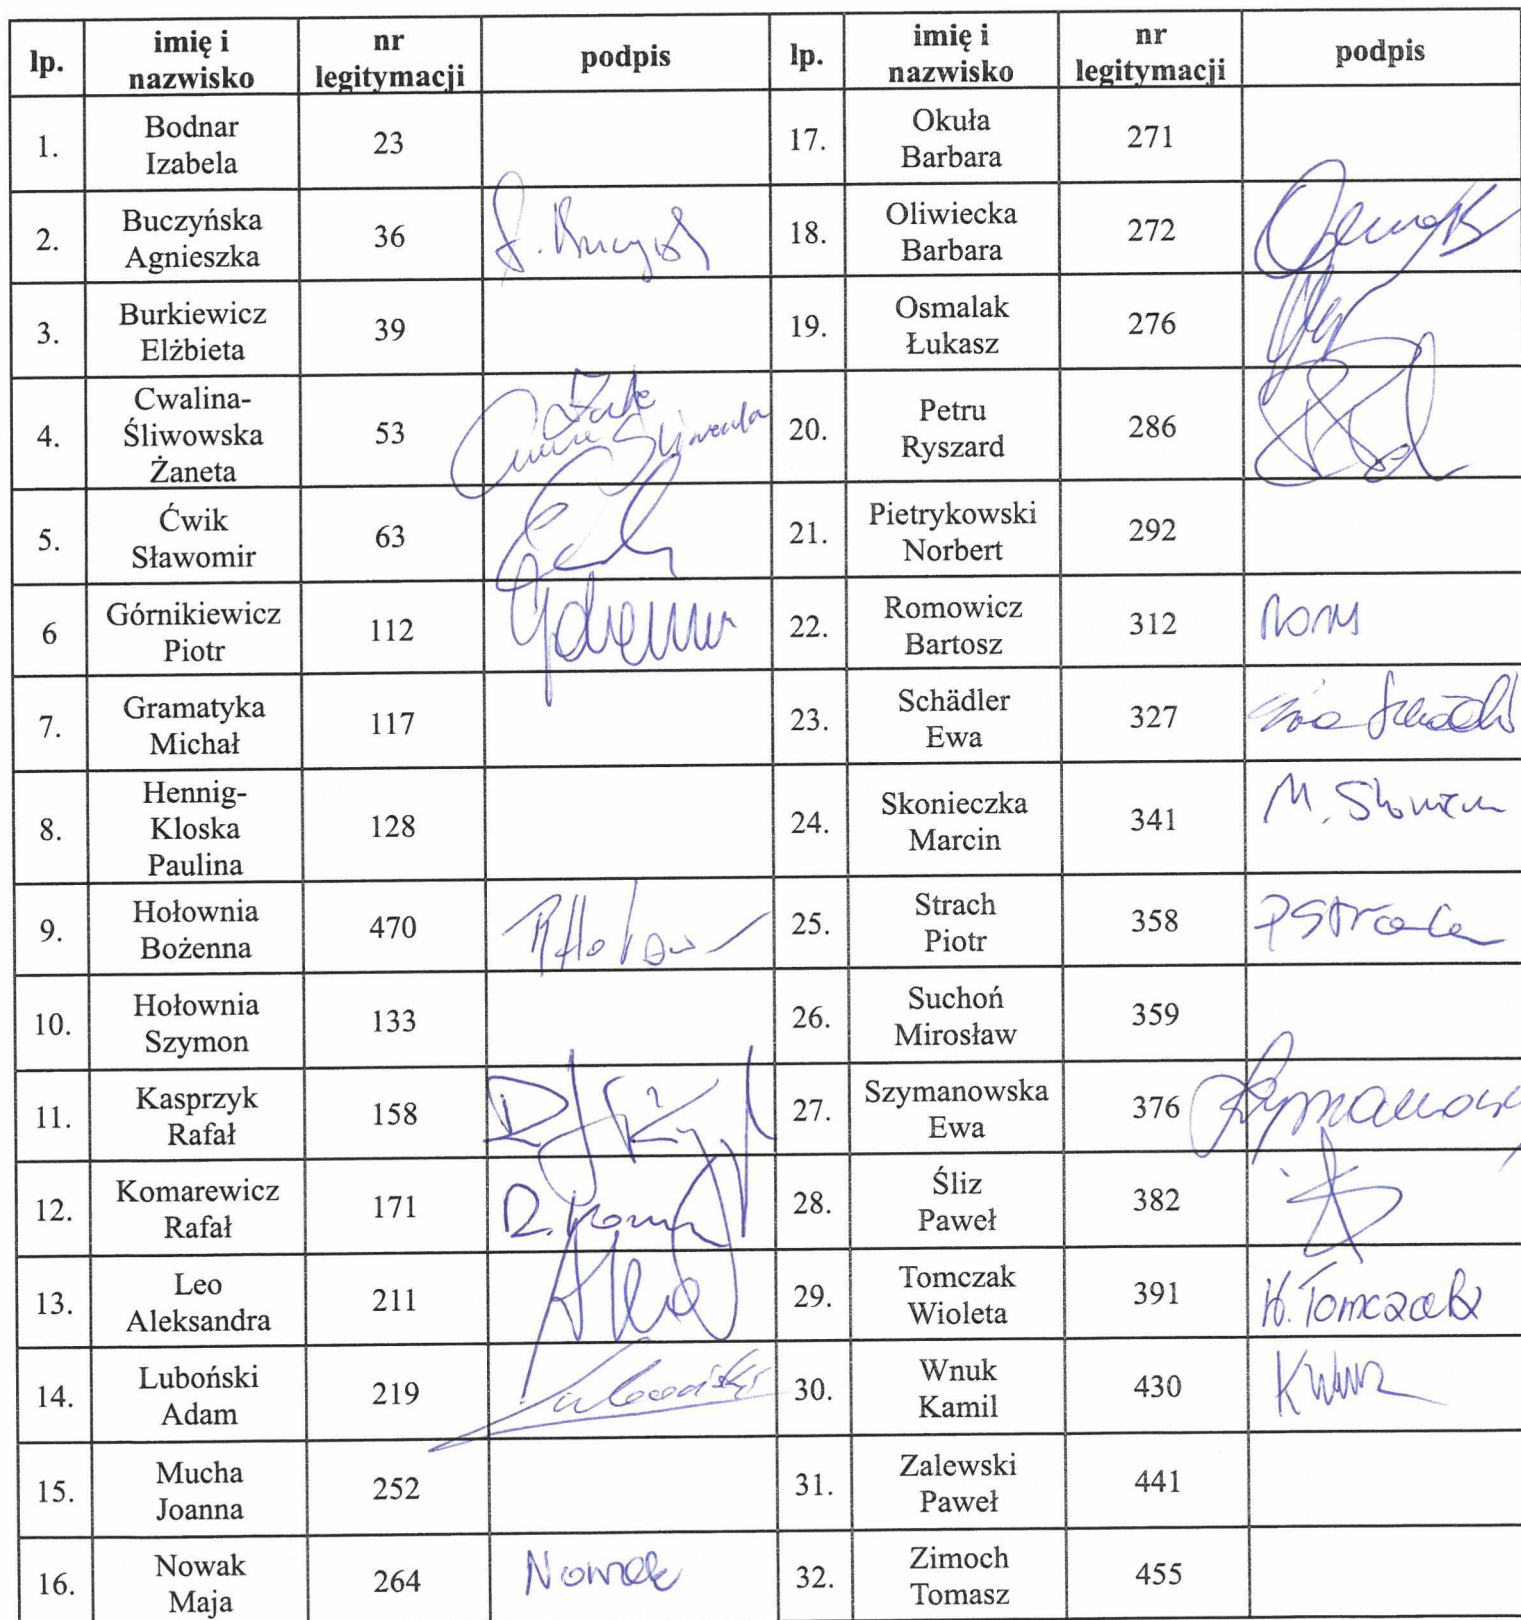 lp. imię i nazwisko nr legitymacji podpis lp. imię i nazwisko nr legitymacji podpis
1. Bodnar Izabela 23 17. Okuła Barbara 271
2. Buczyńska Agnieszka 36 18. Oliwiecka Barbara 272
3. Burkiewicz Elżbieta 39 19. Osmalak Łukasz 276
4. Cwalina-Śliwowska Żaneta 53 20. Petru Ryszard 286
5. Ćwik Sławomir 63 21. Pietrykowski Norbert 292
6 Górnikiewicz Piotr 112 22. Romowicz Bartosz 312
7. Gramatyka Michał 117 23. Schädler Ewa 327
8. Hennig-Kloska Paulina 128 24. Skonieczka Marcin 341
9. Hołownia Bożenna 470 25. Strach Piotr 358
10. Hołownia Szymon 133 26. Suchoń Mirosław 359
11. Kasprzyk Rafał 158 27. Szymanowska Ewa 376
12. Komarewicz Rafał 171 28. Śliz Paweł 382
13. Leo Aleksandra 211 29. Tomczak Wioleta 391 W. Tomczak
14. Luboński Adam 219 30. Wnuk Kamil 430
15. Mucha Joanna 252 31. Zalewski Paweł 441
16. Nowak Maja 264 Nowak 32. Zimoch Tomasz 455